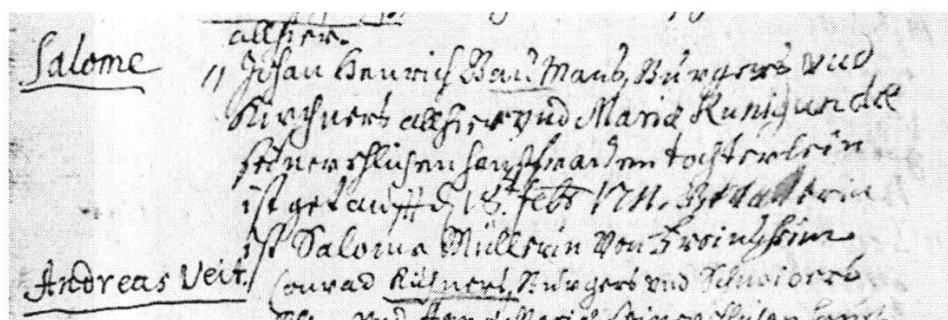 allhier.
Salome
Johan Henrich Baumans, Burgers vnd
Kirchners allhier vnd Maria Kunigundae
seiner ehlichen haußfrauen tochterlein
ist getaufft d 18. Febr 1711. Gevatterin
ist Salome Müllerin von
Andreas Veit.
Conrad Küfners, Burgers vnd Schneiders
vnd seiner